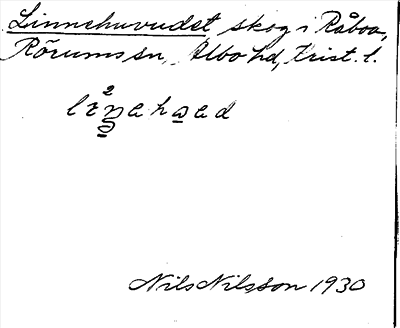 Linnehuvudet skog i Råboa,
Rörums sn, Albo hd, Krist. l.
Nils Nilsson 1930